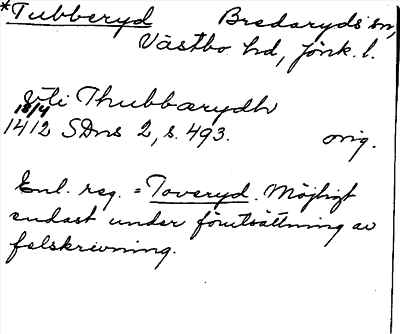 *Tubberyd Bredaryds sn,
Västbo hd, Jönk. l.
i Thubbarydh
18/4
1412 SDns 2, s. 493. orig.
Enl. reg. = Toveryd. Möjligt
endast under förutsättning av
felskrivning.